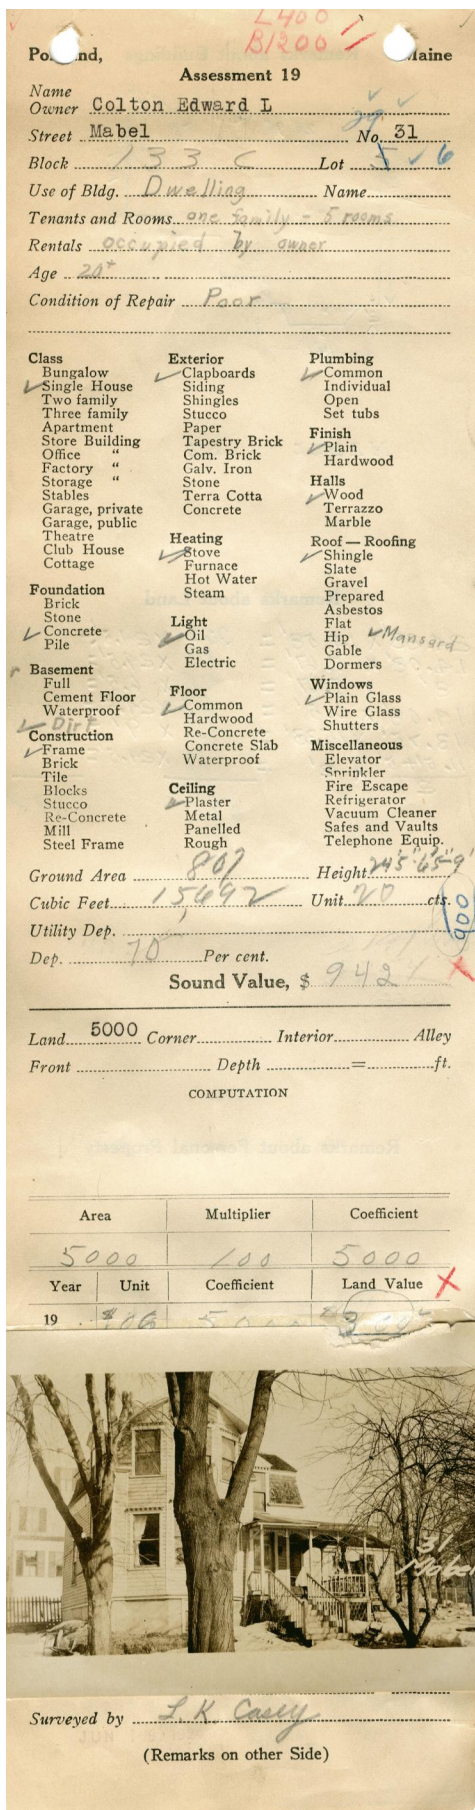 L400
B1200
Portland, Maine
Assessment 19
Name
Owner Colton Edward L
Street Mabel No. 31
29
Block 133 C Lot 5 6
Use of Bldg. Dwelling Name
Tenants and Rooms one family - 5 rooms
Rentals occupied by owner
Age 20+
Condition of Repair Poor
Class
Bungalow
Single House
Two family
Three family
Apartment
Store Building
Office "
Factory "
Storage "
Stables
Garage, private
Garage, public
Theatre
Club House
Cottage
Foundation
Brick
Stone
Concrete
Pile
Basement
Full
Cement Floor
Waterproof
Dirt
Construction
Frame
Brick
Tile
Blocks
Stucco
Re-Concrete
Mill
Steel Frame
Exterior
Clapboards
Siding
Shingles
Stucco
Paper
Tapestry Brick
Com. Brick
Galv. Iron
Stone
Terra Cotta
Concrete
Heating
Stove
Furnace
Hot Water
Steam
Light
Oil
Gas
Electric
Floor
Common
Hardwood
Re-Concrete
Concrete Slab
Waterproof
Ceiling
Plaster
Metal
Panelled
Rough
Plumbing
Common
Individual
Open
Set tubs
Finish
Plain
Hardwood
Halls
Wood
Terrazzo
Marble
Roof — Roofing
Shingle
Slate
Gravel
Prepared
Asbestos
Flat
Hip Mansard
Gable
Dormers
Windows
Plain Glass
Wire Glass
Shutters
Miscellaneous
Elevator
Sprinkler
Fire Escape
Refrigerator
Vacuum Cleaner
Safes and Vaults
Telephone Equip.
Ground Area 807 Height
Cubic Feet 15692 Unit 20 cts.
900
Utility Dep.
Dep. 70 Per cent.
Sound Value, $ 942
Land 5000 Corner Interior Alley
Front Depth = ft.
COMPUTATION
Area Multiplier Coefficient
5000 100 5000
Year Unit Coefficient Land Value
19 $.06 $300
31
Mabel
Surveyed by L. K. Casey
(Remarks on other Side)